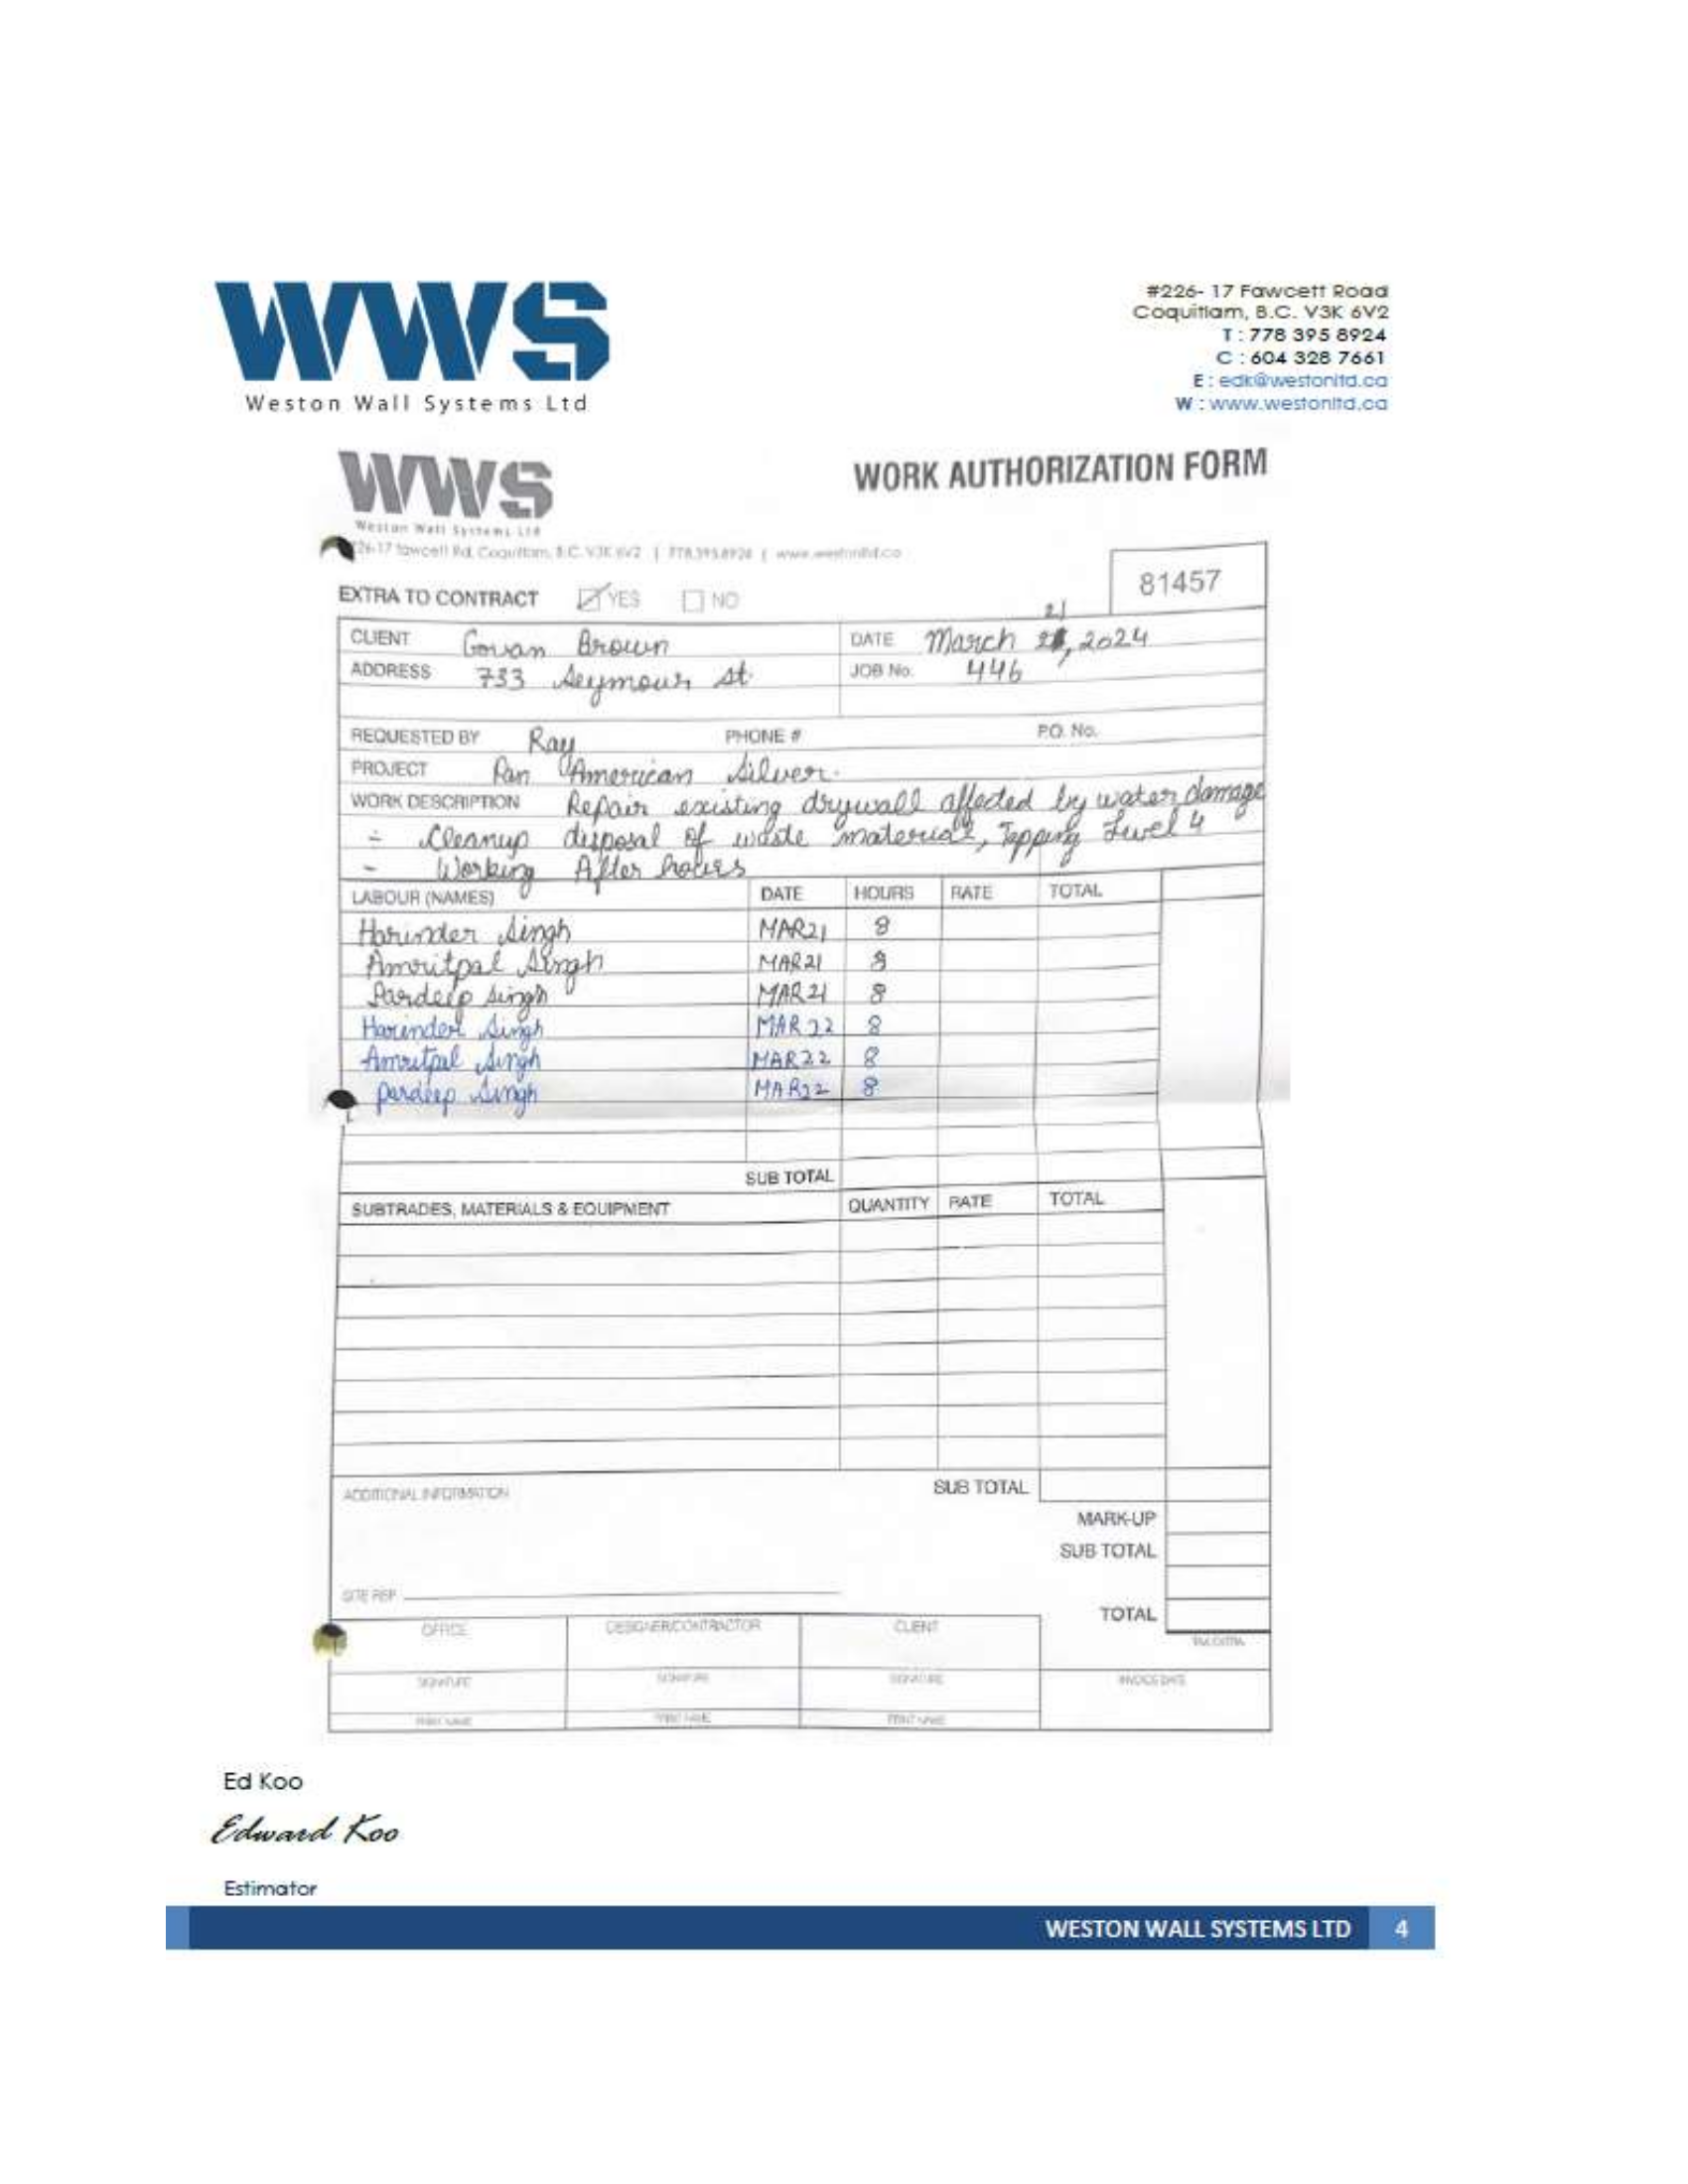 WWS
Weston Wall Systems Ltd
#226- 17 Fawcett Road
Coquitlam, B.C. V3K 6V2
T : 778 395 8924
C : 604 328 7661
E : edk@westonltd.ca
W : www.westonltd.ca
WWS
Weston Wall Systems Ltd
WORK AUTHORIZATION FORM
26-17 fawcett Rd, Coquitlam, B.C. V3K 6V2 | 778.395.8924 | www.westonltd.ca
81457
EXTRA TO CONTRACT YES NO
CLIENT Govan Brown DATE March 21, 2024
ADDRESS 733 Seymour st. JOB No. 446
REQUESTED BY Ray PHONE # P.O. No.
PROJECT Pan American Silver.
WORK DESCRIPTION Repair existing drywall affected by water damage
- Cleanup disposal of waste material, Tapping Level 4
- Working After hours
LABOUR (NAMES) DATE HOURS RATE TOTAL
Harinder Singh MAR21 8
Amritpal Singh MAR21 8
Pardeep Singh MAR21 8
Harinder Singh MAR22 8
Amritpal Singh MAR22 8
Pardeep Singh MAR22 8
SUB TOTAL
SUBTRADES, MATERIALS & EQUIPMENT QUANTITY RATE TOTAL
ADDITIONAL INFORMATION SUB TOTAL
MARK-UP
SUB TOTAL
SITE REP
TOTAL
OFFICE DESIGNER/CONTRACTOR CLIENT
TAX EXTRA
SIGNATURE SIGNATURE SIGNATURE INVOICE DATE
PRINT NAME PRINT NAME PRINT NAME
Ed Koo
Edward Koo
Estimator
WESTON WALL SYSTEMS LTD 4